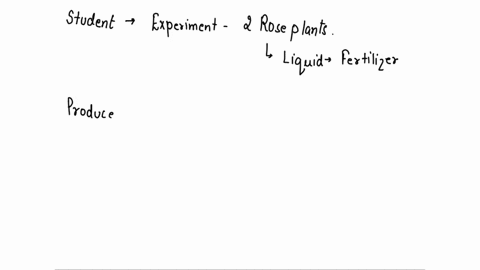 Student → Experiment - 2 Rose plants.
↳ Liquid → Fertilizer
Produce